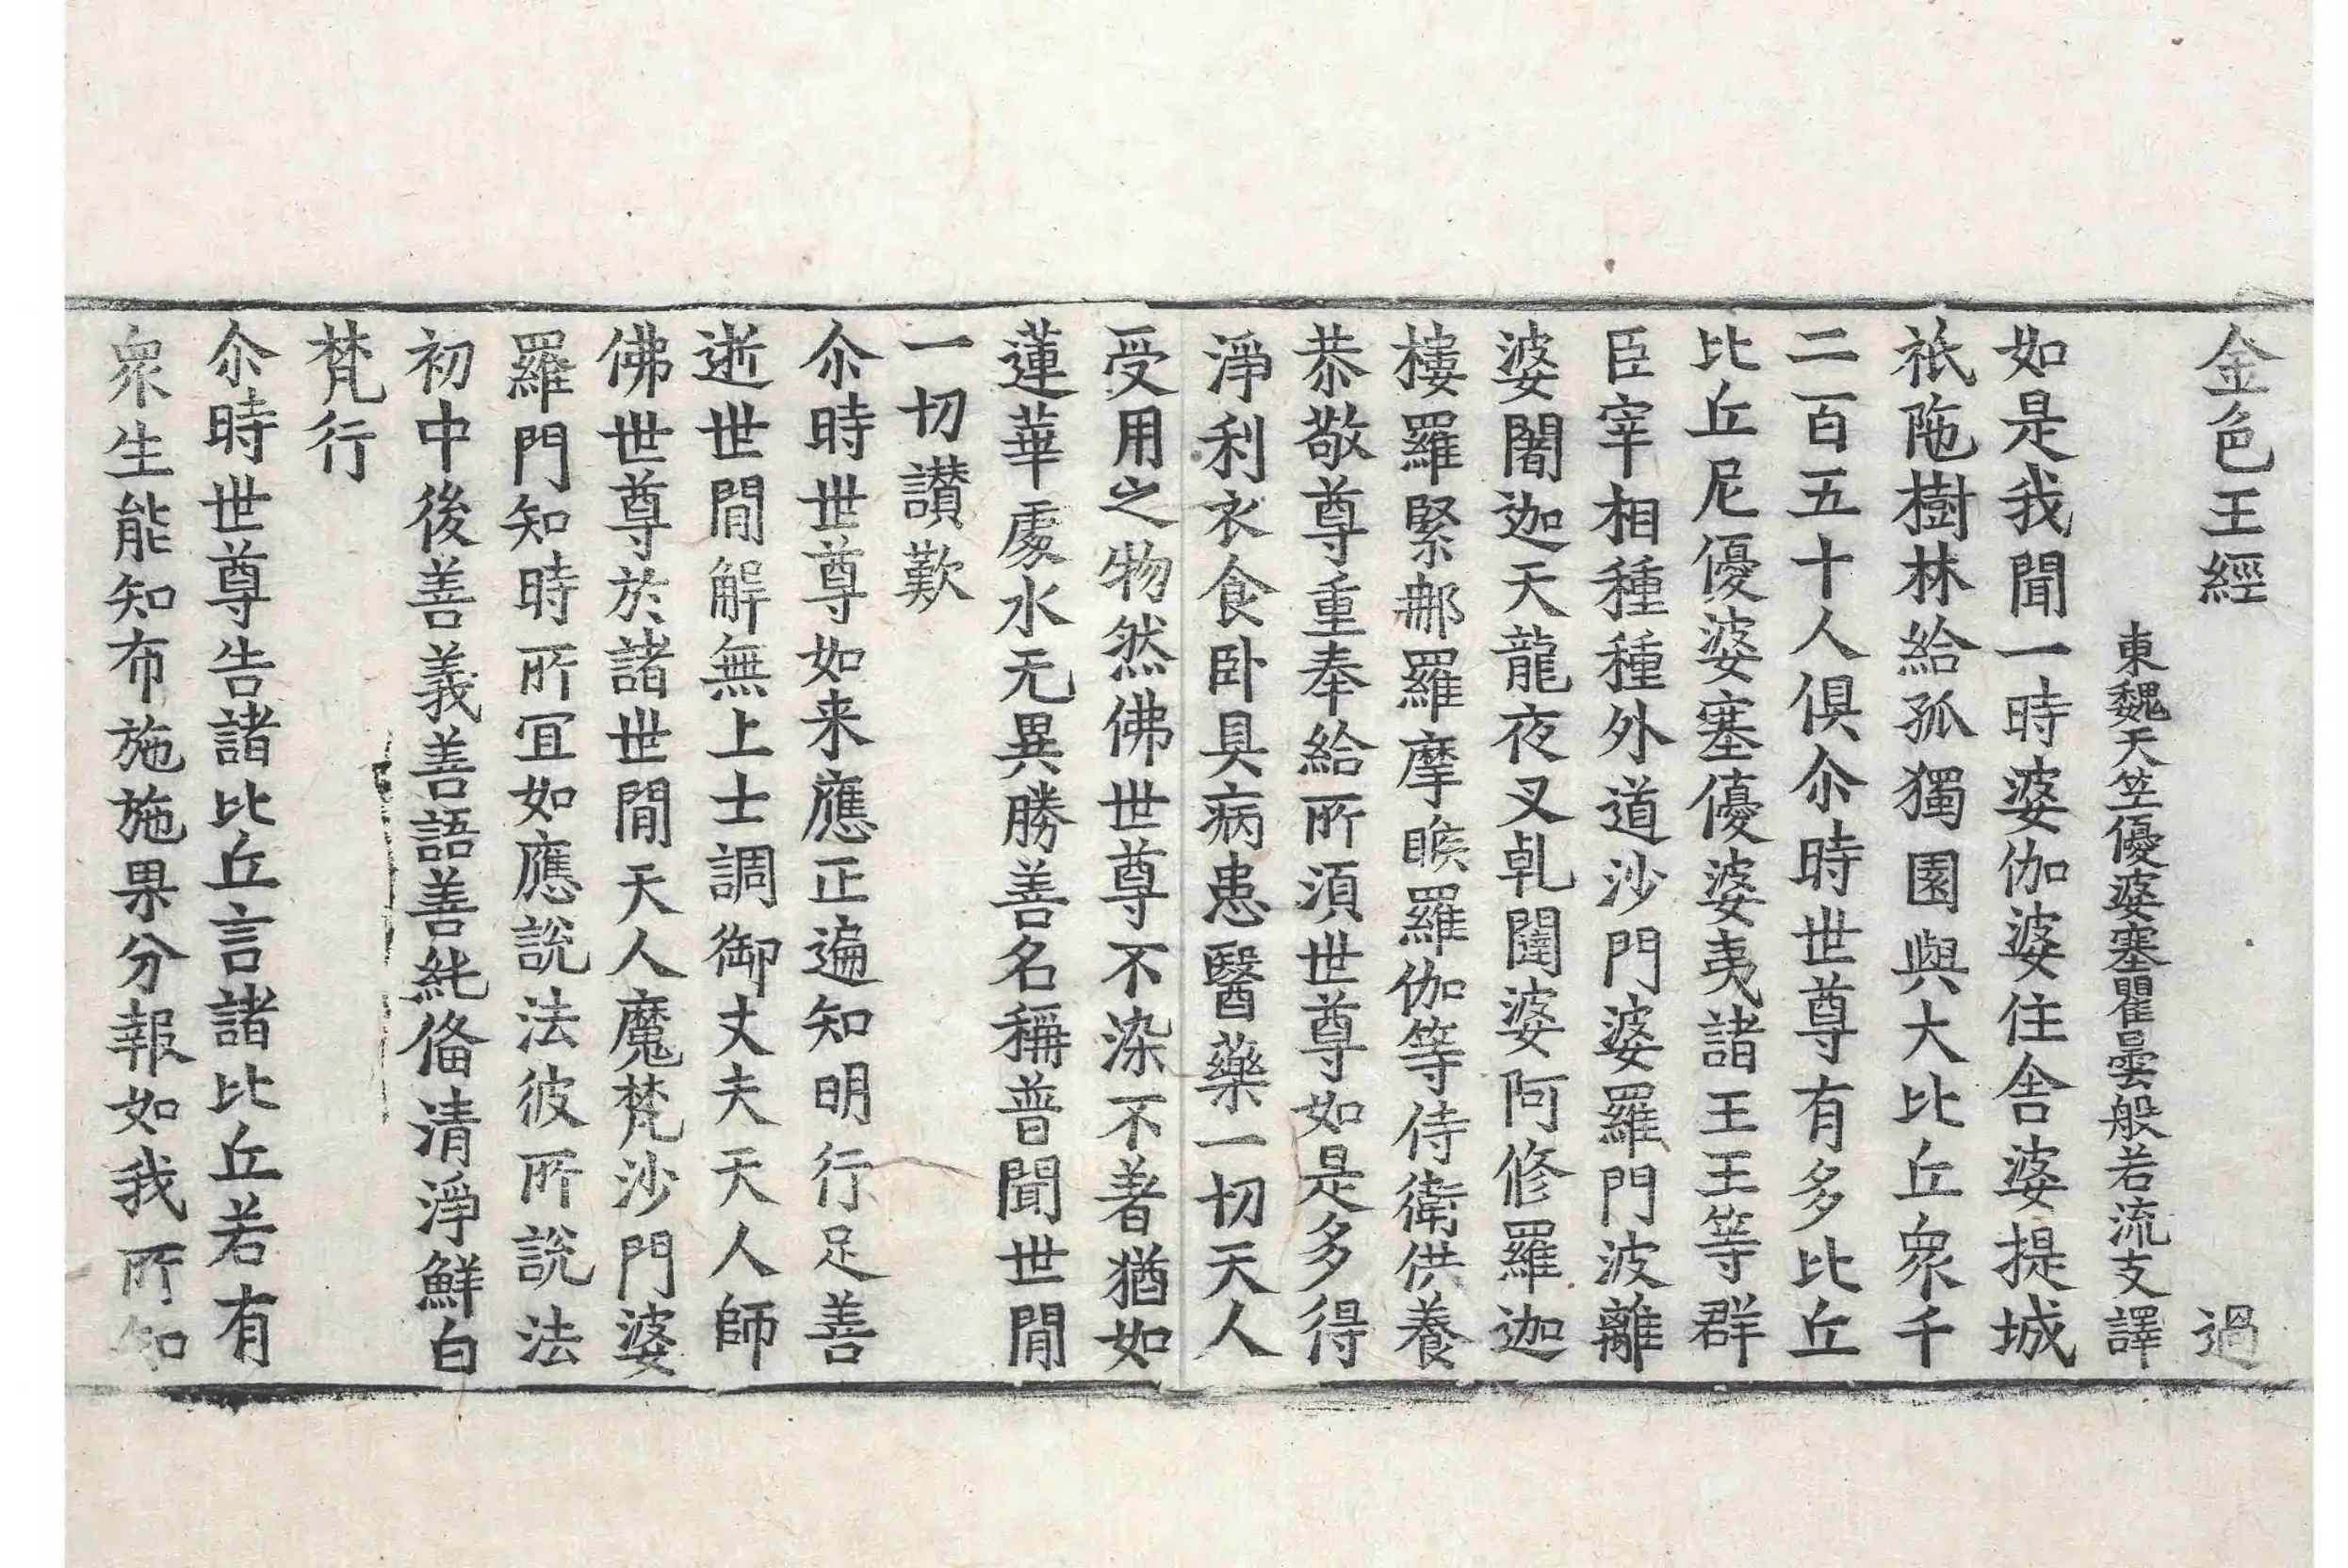 金色王經 過
東魏天笁優婆塞瞿曇般若流支譯
如是我聞一時婆伽婆住舍婆提城
祇陁樹林給孤獨園與大比丘衆千
二百五十人俱尒時世尊有多比丘
比丘尼優婆塞優婆夷諸王王等群
臣宰相種種外道沙門婆羅門波離
婆闍迦天龍夜叉乹闥婆阿修羅迦
樓羅緊那羅摩睺羅伽等侍衛供養
恭敬尊重奉給所須世尊如是多得
淨利衣食卧具病患醫藥一切天人
受用之物然佛世尊不染不著猶如
蓮華處水无異勝善名稱普聞世間
一切讃歎
尒時世尊如来應正遍知明行足善
逝世間解無上士調御丈夫天人師
佛世尊於諸世間天人魔梵沙門婆
羅門知時所冝如應說法彼所說法
初中後善義善語善純俻清淨鮮白
梵行
尒時世尊告諸比丘言諸比丘若有
衆生能知布施施果分報如我所知